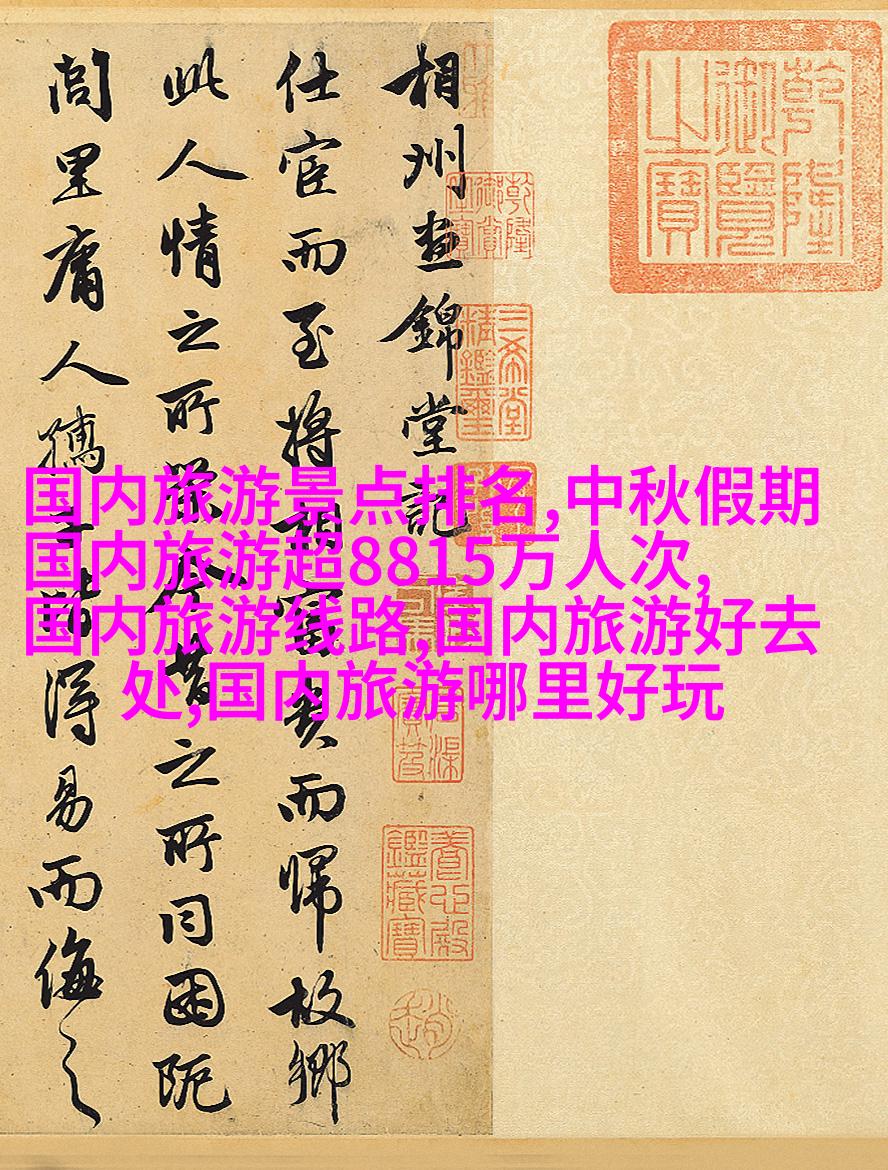 乾隆御覽之寶
三希堂精鑑璽
石渠寶笈
養心殿鑑藏寶
趙
相州晝錦堂記
仕宦而至将相富貴而歸故鄉
此人情之所榮今昔之所同困阨
閭里庸人孺子皆得易而侮之
国内旅游景点排名,中秋假期
国内旅游超8815万人次,
国内旅游线路,国内旅游好去
处,国内旅游哪里好玩